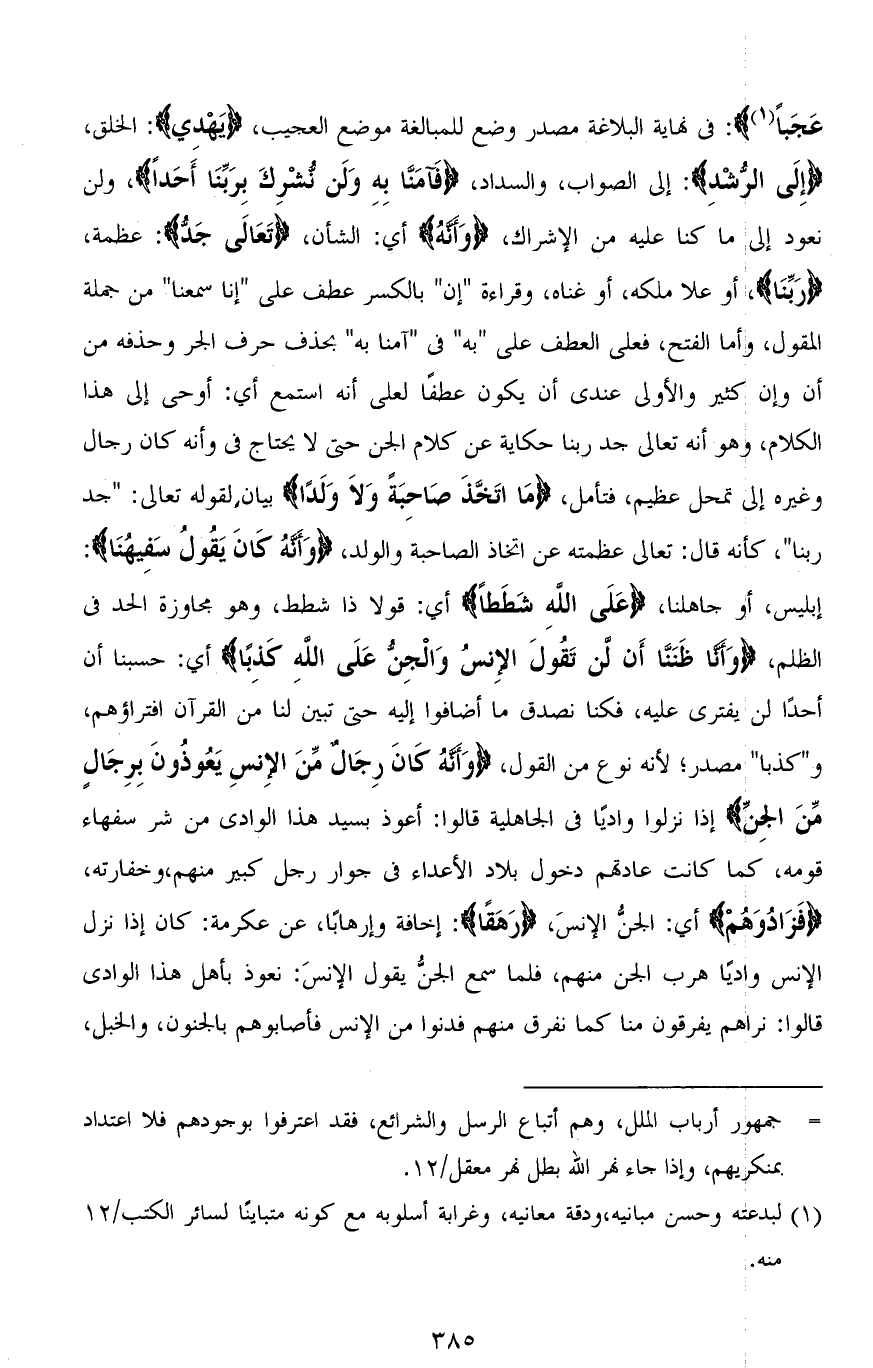 عَجَباً(١)﴾: فى نهاية البلاغة مصدر وضع للمبالغة موضع العجيب، ﴿يَهْدِي﴾: الخلق،
﴿إِلَى الرُّشْدِ﴾: إلى الصواب، والسداد، ﴿فَآمَنَّا بِهِ وَلَن نُّشْرِكَ بِرَبِّنَا أَحَداً﴾، ولن
نعود إلى ما كنا عليه من الإشراك، ﴿وَأَنَّهُ﴾ أي: الشأن، ﴿تَعَالَى جَدُّ﴾: عظمة،
﴿رَبِّنَا﴾، أو علا ملكه، أو غناه، وقراءة "إن" بالكسر عطف على "إنا سمعنا" من جملة
المقول، وأما الفتح، فعلى العطف على "به" فى "آمنا به" بحذف حرف الجر وحذفه من
أن وإن كثير والأولى عندى أن يكون عطفًا لعلى أنه استمع أي: أوحى إلى هذا
الكلام، وهو أنه تعالى جد ربنا حكاية عن كلام الجن حتى لا يحتاج فى وأنه كان رجال
وغيره إلى تمحل عظيم، فتأمل، ﴿مَا اتَّخَذَ صَاحِبَةً وَلاَ وَلَدًا﴾ بيان لقوله تعالى: "جد
ربنا"، كأنه قال: تعالى عظمته عن اتخاذ الصاحبة والولد، ﴿وَأَنَّهُ كَانَ يَقُولُ سَفِيهُنَا﴾:
إبليس، أو جاهلنا، ﴿عَلَى اللَّهِ شَطَطاً﴾ أي: قولا ذا شطط، وهو مجاوزة الحد فى
الظلم، ﴿وَأَنَّا ظَنَنَّا أَن لَّن تَقُولَ الإِنسُ وَالْجِنُّ عَلَى اللَّهِ كَذِبًا﴾ أي: حسبنا أن
أحدًا لن يفترى عليه، فكنا نصدق ما أضافوا إليه حتى تبين لنا من القرآن افتراؤهم،
و"كذبا" مصدر؛ لأنه نوع من القول، ﴿وَأَنَّهُ كَانَ رِجَالٌ مِّنَ الإِنسِ يَعُوذُونَ بِرِجَالٍ
مِّنَ الجِنِّ﴾ إذا نزلوا واديًا فى الجاهلية قالوا: أعوذ بسيد هذا الوادى من شر سفهاء
قومه، كما كانت عادتهم دخول بلاد الأعداء فى جوار رجل كبير منهم،وخفارته،
﴿فَزَادُوهُمْ﴾ أي: الجنُّ الإنسَ، ﴿رَهَقًا﴾: إخافة وإرهابًا، عن عكرمة: كان إذا نزل
الإنس واديًا هرب الجن منهم، فلما سمع الجنُّ يقول الإنسَ: نعوذ بأهل هذا الوادى
قالوا: نراهم يفرقون منا كما نفرق منهم فدنوا من الإنس فأصابوهم بالجنون، والخبل،
= جمهور أرباب الملل، وهم أتباع الرسل والشرائع، فقد اعترفوا بوجودهم فلا اعتداد
بمنكريهم، وإذا جاء نهر الله بطل نهر معقل/١٢.
(١) لبدعته وحسن مبانيه،ودقة معانيه، وغرابة أسلوبه مع كونه متباينًا لسائر الكتب/١٢
منه.
٣٨٥